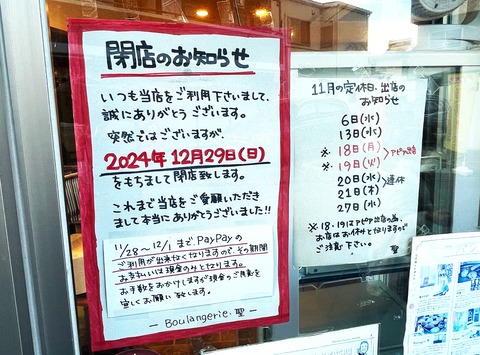 閉店のお知らせ
いつも当店をご利用下さいまして、
誠にありがとうございます。
突然ではございますが、
2024年12月29日(日)
をもちまして閉店致します。
これまで当店をご愛顧いただき
まして本当にありがとうございました!!
11/28〜12/1まで、PayPayの
ご利用が出来なくなりますので、その期間
お支払いは現金のみとなります。
お手数をおかけしますが現金のご用意を
宜しくお願い致します。
― Boulangerie. 聖 ―
11月の定休日、出店の
お知らせ
6日(水)
13日(水)
※ 18日(月)
※ 19日(火)
アピア出店
20日(水)
21日(木)
連休
27日(水)
※18・19はアピア出店の為、
お店はお休みとなりますので
ご注意下さい。 聖